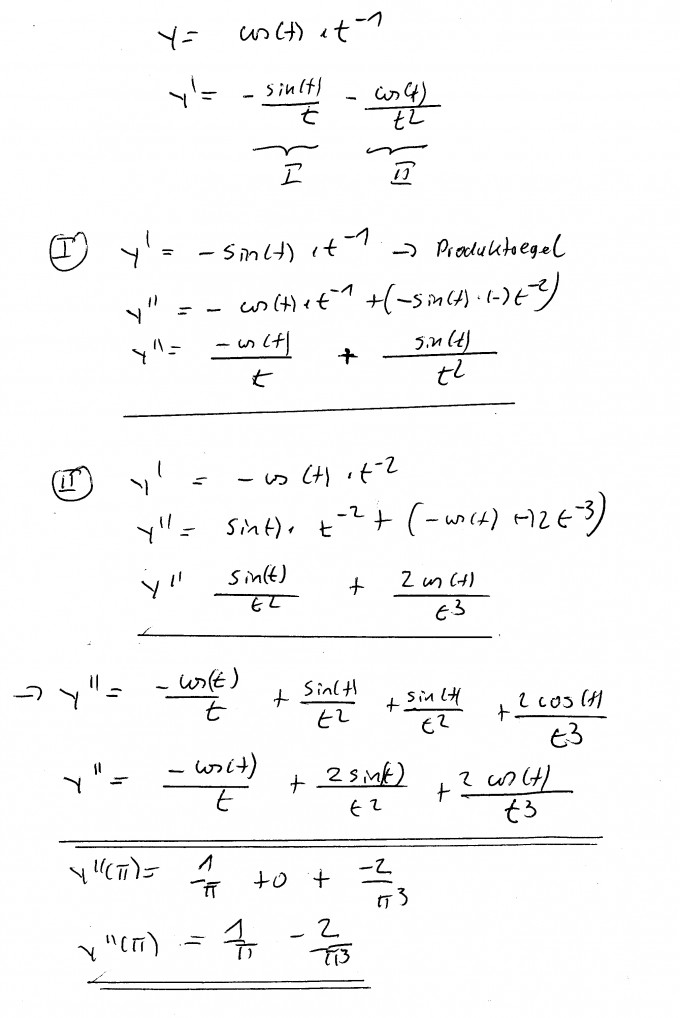 y = cos(t) · t⁻¹
y' = - sin(t)/t - cos(t)/t²
I II
I y' = - sin(t) · t⁻¹ → Produktregel
y'' = - cos(t) · t⁻¹ + (-sin(t) · (-) t⁻²)
y'' = -cos(t)/t + sin(t)/t²
II y' = - cos(t) · t⁻²
y'' = sin(t) · t⁻² + (-cos(t) (-)2t⁻³)
y'' sin(t)/t² + 2 cos(t)/t³
→ y'' = -cos(t)/t + sin(t)/t² + sin(t)/t² + 2 cos(t)/t³
y'' = -cos(t)/t + 2 sin(t)/t² + 2 cos(t)/t³
y''(π) = 1/π + 0 + -2/π³
y''(π) = 1/π - 2/π³